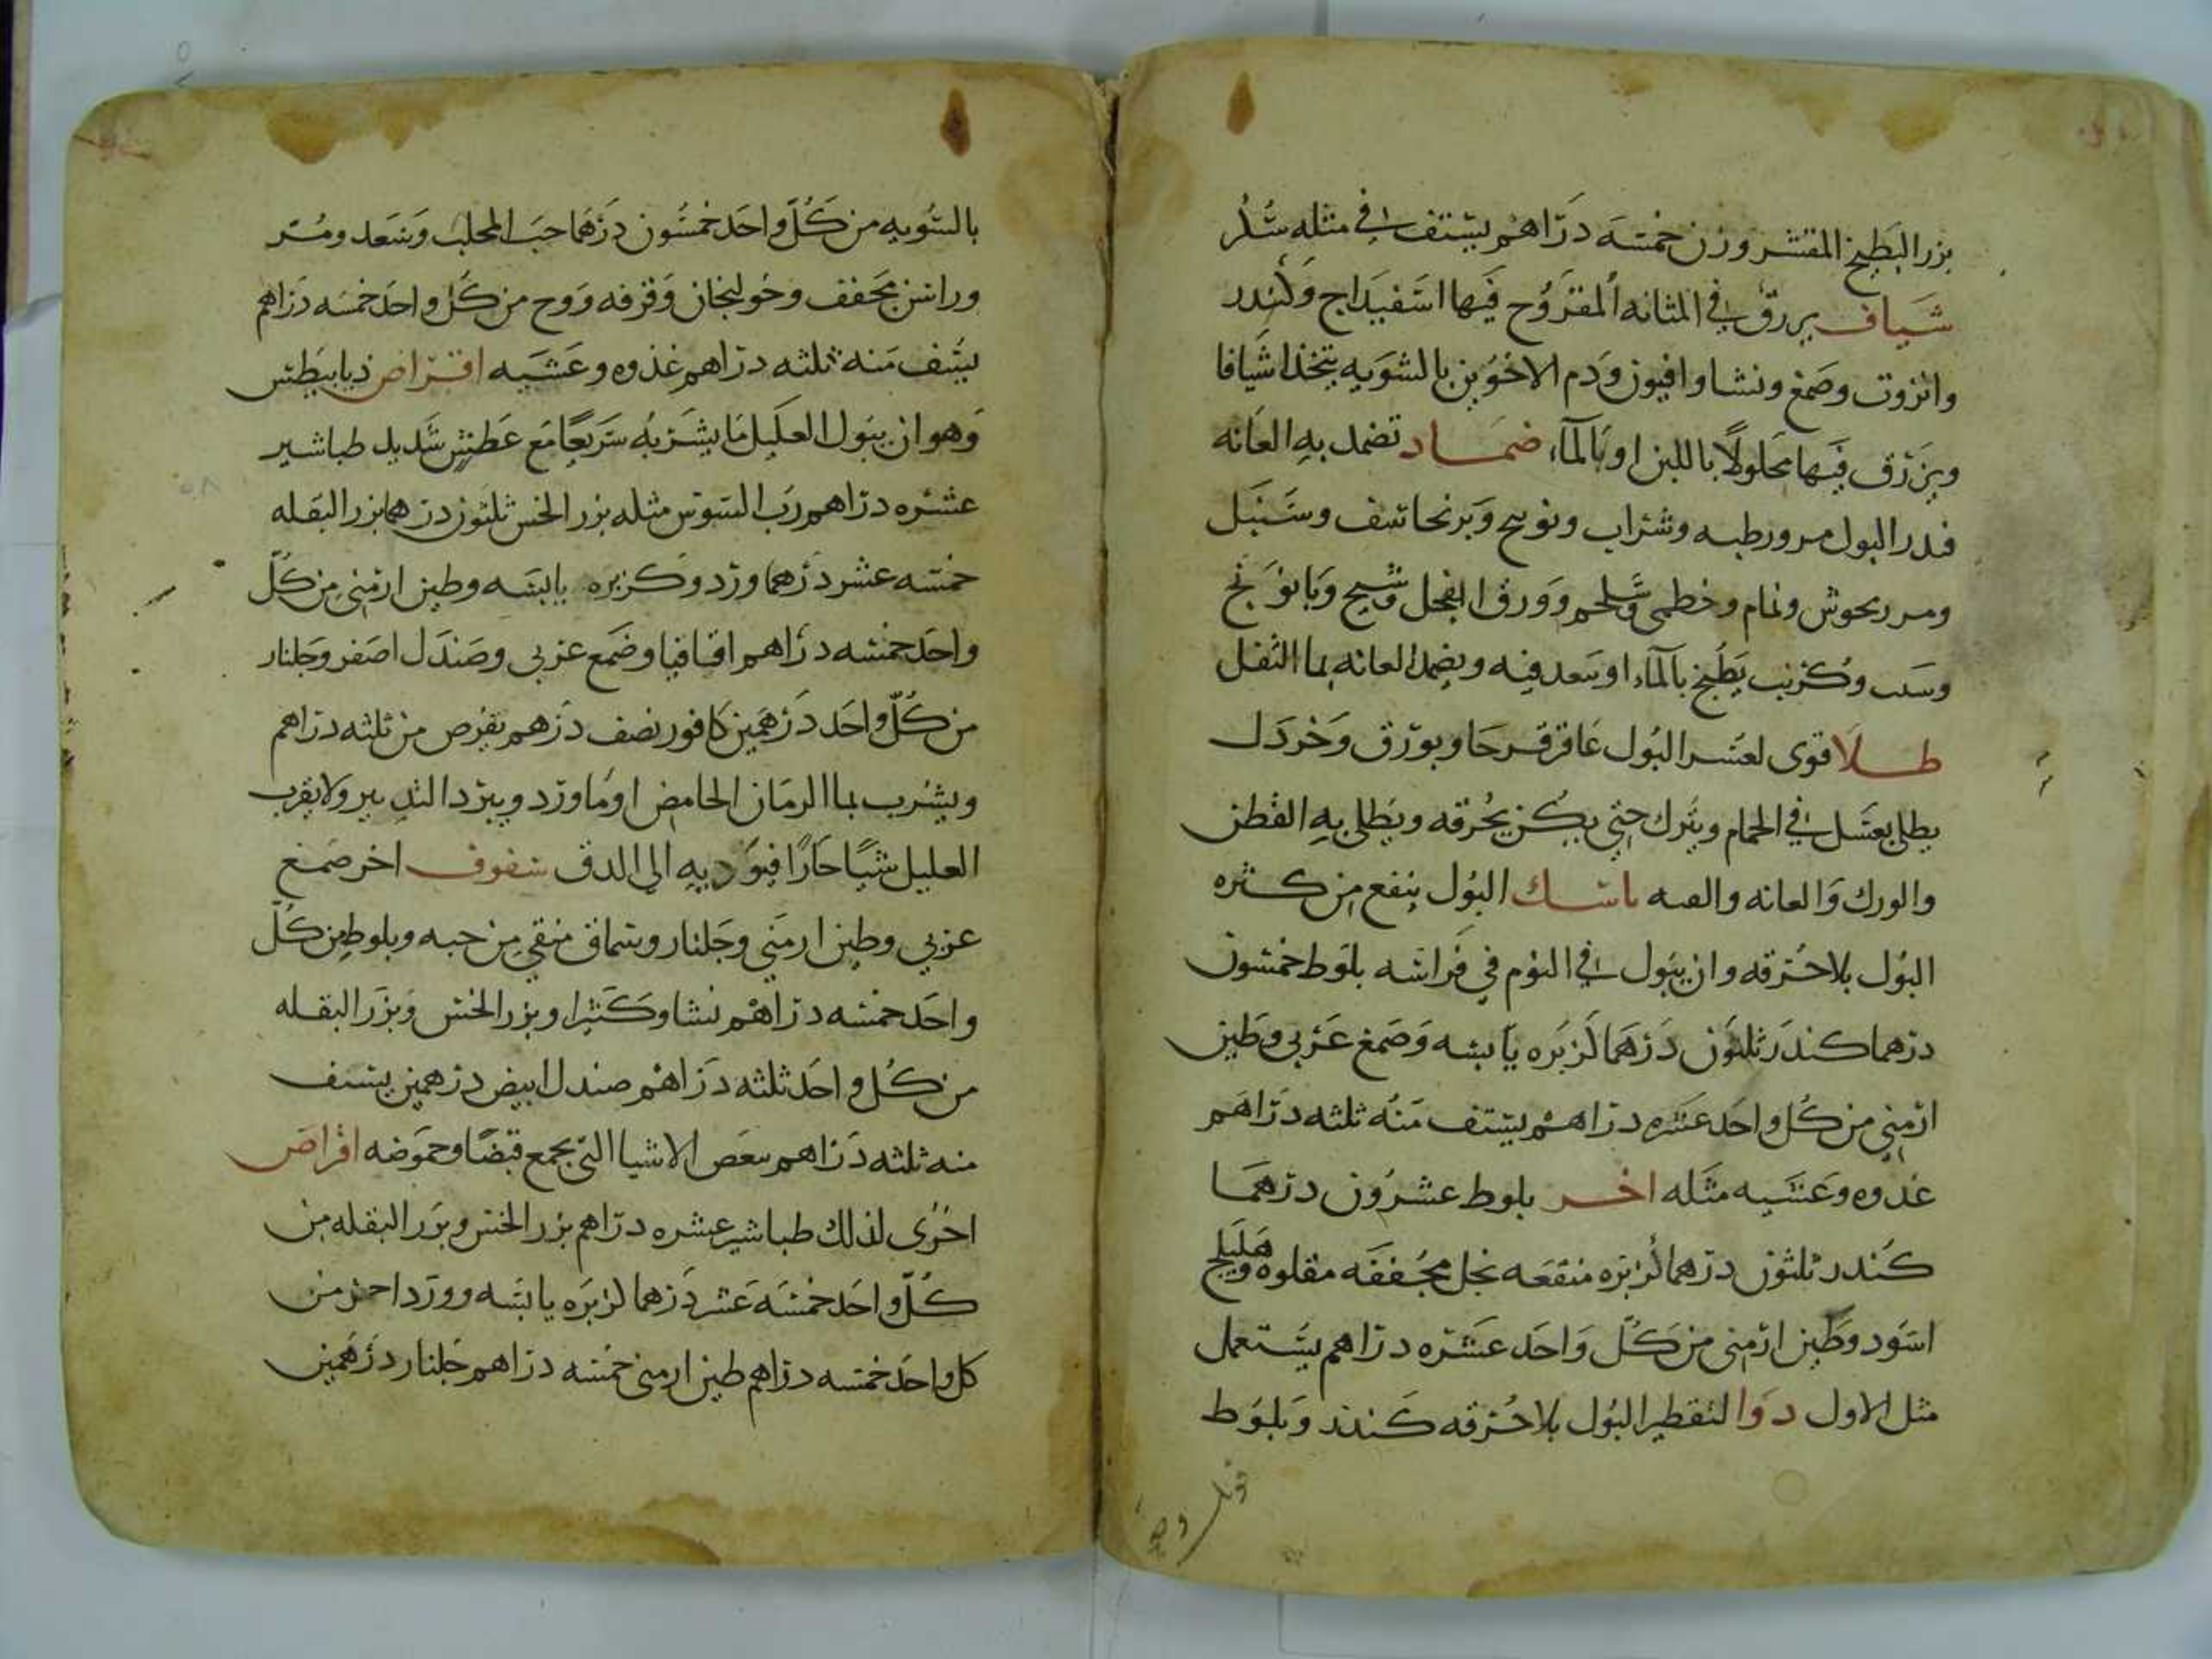 بزر البطيخ المقشر وزن خمسه دراهم يستف في مثله سكر
شياف يزرق في المثانه المقروح فيها اسفيداج وكندر
وانزروت وصمغ ونشا وافيون ودم الاخوين بالسويه يتخذ اشيافا
ويزرق فيها محلولا باللبن او بالماء ضماد تضمد به العانه
فيدر البول مر ورطبه وشراب وفوتنج وبرنجاسف وسنبل
ومرزنجوش ونمام وخطمى وشلجم وورق الفجل وشيح وبابونج
وكرنب يطبخ بالماء او فيه ويضمد العانه بما الثفل
طلا قوى لعسر البول عاقرقرحا وبورق وخردل
يطلى بعسل في الحمام ويترك حتى يحرقه ويطلى به القطن
والورك والعانه ماسك البول ينفع من كثره
البول بلا حرقه وان يبول في النوم في فراشه بلوط خمسون
درهما كندر ثلثون درهما كزبره يابسه وصمغ عربى وطين
ارمنى من كل واحد عشره دراهم يستف منه ثلثه دراهم
غدوه وعشيه مثله اخر بلوط عشرون درهما
كندر ثلثون درهما كزبره منقعه بخل مجففه مقلوه وهليلج
اسود وطين ارمنى من كل واحد عشره دراهم يستعمل
مثل الاول دوا لتقطير البول بلا حرقه كندر وبلوط
بالسويه من كل واحد خمسون درهما حب المحلب وسعد ومر
وراسن مجفف وخولنجان وقرفه ووج من كل واحد خمسه دراهم
يستف منه ثلثه دراهم غذوه وعشيه اقراص ذيابيطس
وهو ان يبول العليل ما يشربه سريعا مع عطش شديد طباشير
عشره دراهم رب السوس مثله بزر الخس ثلثون درهما بزر البقله
خمسه عشر درهما ورد وكزبره يابسه وطين ارمنى من كل
واحد خمسه دراهم اقاقيا وصمغ عربى وصندل اصفر وجلنار
من كل واحد درهمين كافور نصف درهم يقرص من ثلثه دراهم
ويشرب بما الرمان الحامض او ما ورد ويبرد التدبير ولا يقرب
العليل شيا حارا فيوديه الى الدق سفوف اخر صمغ
عربي وطين ارمني وجلنار وسماق منقى من حبه وبلوط من كل
واحد خمسه دراهم نشا وكثيرا وبزر الخس وبزر البقله
من كل واحد ثلثه دراهم صندل ابيض درهمين يستف
منه ثلثه دراهم ببعض الاشيا التي تجمع قبضا وحموضه اقراص
اخرى لذلك طباشير عشره دراهم بزر الخس وبزر البقله من
كل واحد خمسه عشر درهما كزبره يابسه وورد احمر من
كل واحد خمسه دراهم طين ارمنى خمسه دراهم جلنار درهمين